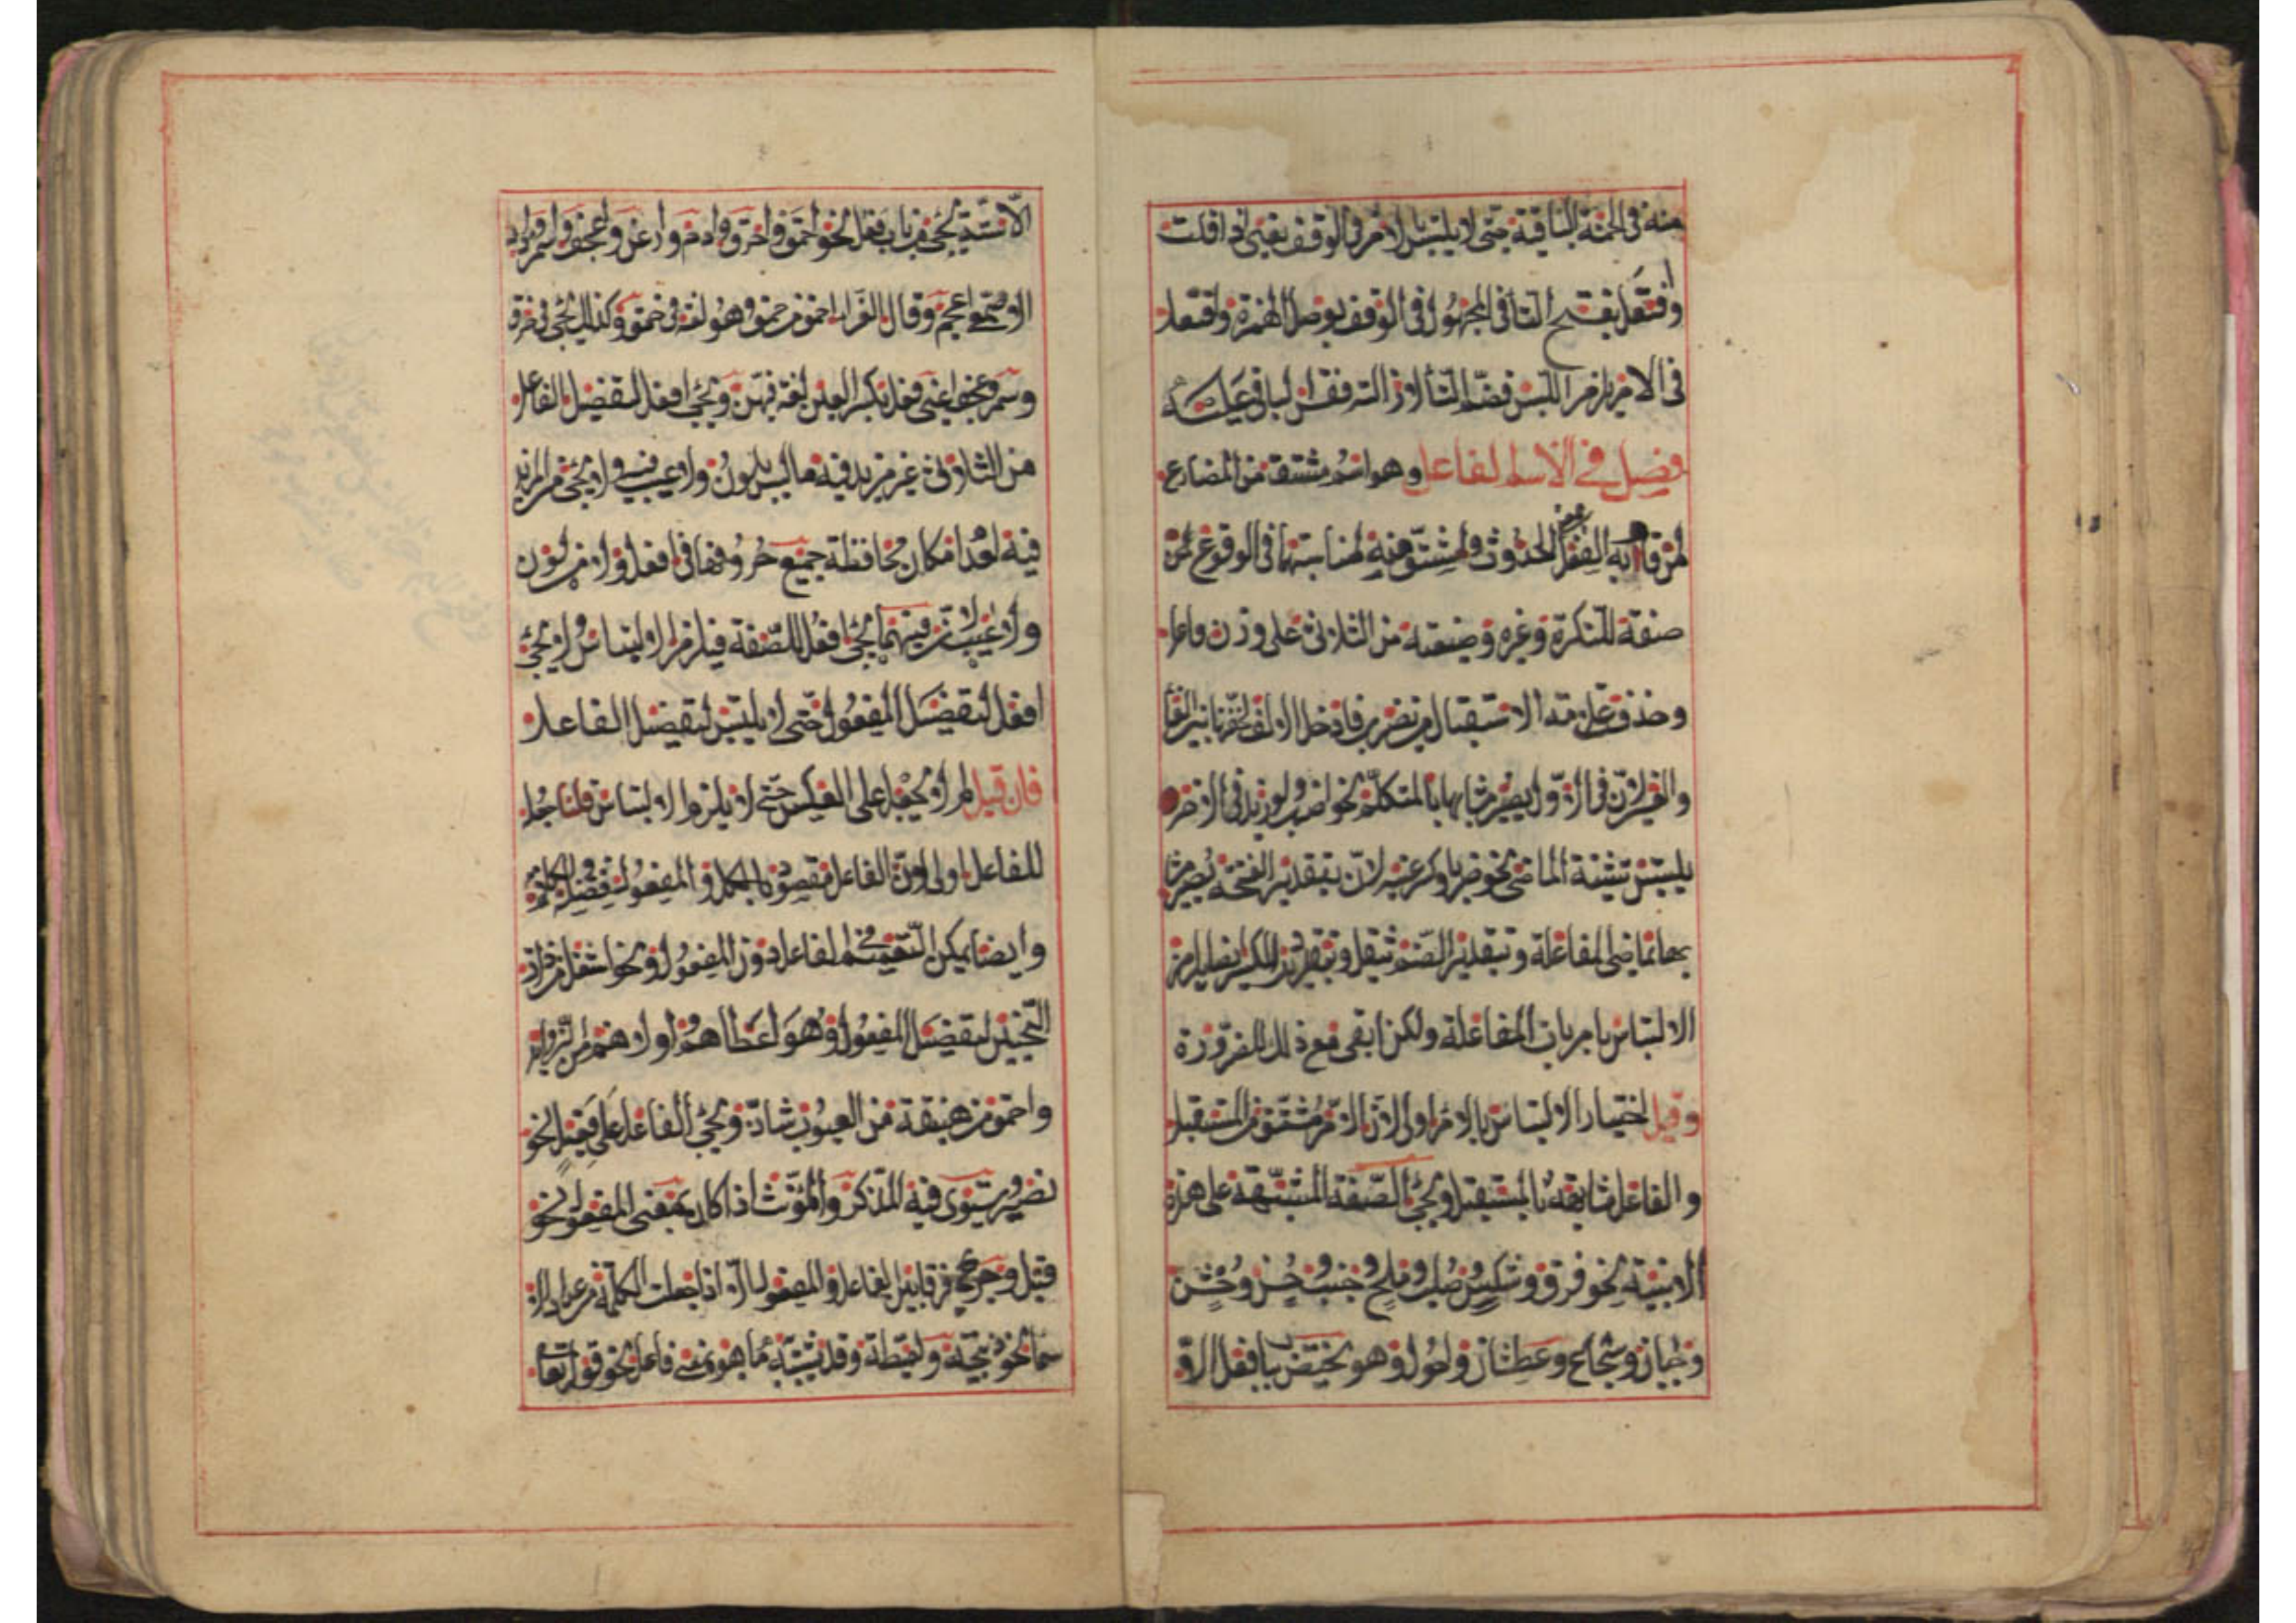 منه في الخمسة الباقية حتى لا يلتبس الامر في الوقف يعني اذا قلت
وافتعل بفتح التاء في المجهول في الوقف بوصل الهمزة وافتعل
في الامر يلزم اللبس فضم التاء لازالته فقس الباقي عليه
فصل في الاسم الفاعل وهو اسم مشتق من المضارع
لمن قام به الفعل بمعنى الحدوث واشتق منه لمناسبتهما في الوقوع
صفة للنكرة وغيره وصيغته من الثلاثي على وزن فاعل
وحذف علامة الاستقبال من يضرب فادخل الالف لخفتها بين الفاء
والعين لان في الاول يصير مشابها بالمتكلم نحو اضرب ولو زيد في الاخر
يلتبس تثنية الماضي نحو ضربا وكسر عينه لان بتقدير الفتحة يصير مشا
بها بماضي المفاعلة وبتقدير الضم يثقل وبتقدير الكسر ايضا يلزم
الالتباس بامر باب المفاعلة ولكن ابقى مع ذلك للضرورة
وقيل اختيار الالتباس بالامر اولى لان الامر مشتق من المستقبل
والفاعل مشابهة بالمستقبل ويجئ الصفة المشبهة على هذه
الابنية نحو فرق وشكس وصلب وملح وجنب وحسن وخشن
وجبان وشجاع وعطشان واحول وهو يختص بباب فعل الا
الاستة يجئ من باب فعل نحو احمق واخرق وادم وارعن واعجف واسمر وزاد
الاصمعي اعجم وقال الفراء احمق من حمق وهو لغة في حمق وكذلك يجئ في خرق
وسمر وعجف اعني فعل بكسر العين لغة فيهن ويجئ افعل لتفضيل الفاعل
من الثلاثي غير مزيد فيه مما ليس بلون ولا عيب ولا يجئ من المزيد
فيه لعدم امكان محافظة جميع حروفها في افعل ولا من لون
ولا عيب لان فيهما يجئ افعل للصفة فيلزم الالتباس ولا يجئ
افعل لتفضيل المفعول حتى لا يلتبس لتفضيل الفاعل
فان قيل لم لا يجعل على العكس حتى لا يلزم الالتباس قلنا جعله
للفاعل اولى لان الفاعل مقصود بالكلام والمفعول فضلة
وايضا يمكن التعميم في الفاعل دون المفعول ونحو اشغل من ذات
النحيين لتفضيل المفعول وهو اعطاهم واولاهم من الزوايد
واحمق من هبنقة من العيوب شاذ ويجئ الفاعل على فعيل نحو
نصير ويستوى فيه المذكر والمؤنث اذا كان بمعنى المفعول نحو
قتيل وجريح فرقا بين الفاعل والمفعول الا اذا جعلت الكلمة من عداد الا
سماء نحو ذبيحة ولقيطة وقد يشبه بما هو بمعنى فاعل نحو قوله تعالى